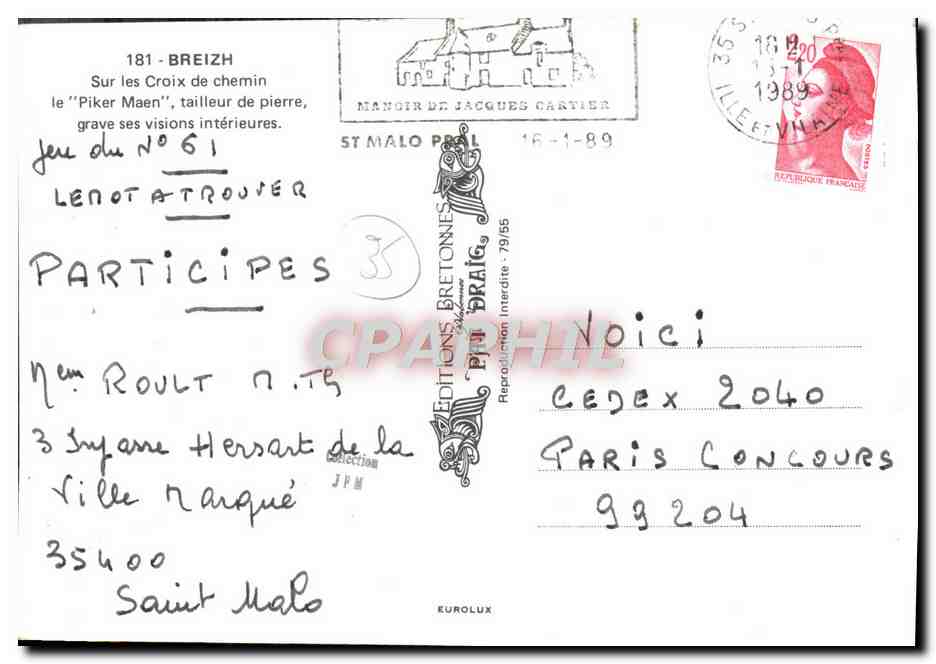 181 - BREIZH
Sur les Croix de chemin
le "Piker Maen", tailleur de pierre,
grave ses visions intérieures.
Jeu du N° 61
LE MOT A TROUVER
PARTICIPES
35
Mem ROULT M.Th
3 Impasse Hersart de la
Ville Marqué
35400
Saint Malo
MANOIR DE JACQUES CARTIER
ST MALO PPAL 16-1-89
18 H
1989
ILLE ET VILAINE
2,20
POSTES
REPUBLIQUE FRANÇAISE
EDITIONS BRETONNES
Reproduction Interdite - 79/55
CPAPHIL
Collection
JFM
VOICI
CEDEX 2040
PARIS CONCOURS
99204
EUROLUX